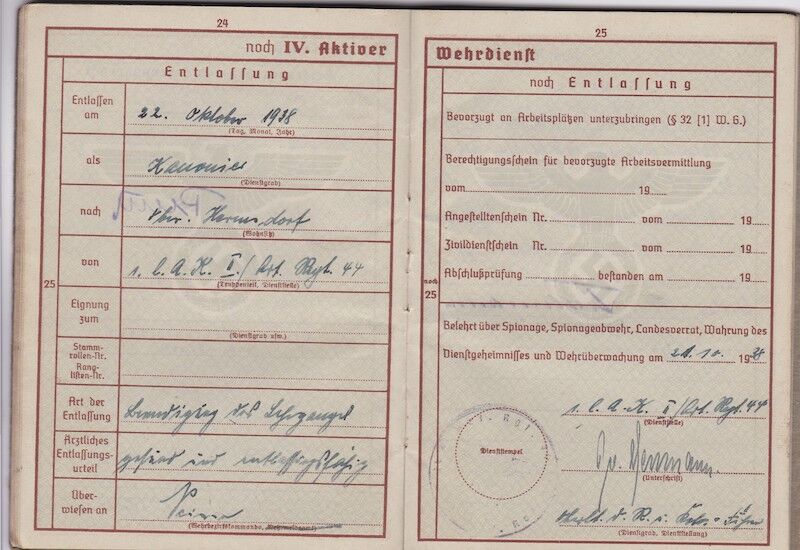 24
noch IV. Aktiver
Entlassung
Entlassen am
22. Oktober 1938
(Tag, Monat, Jahr)
als
Kanonier
(Dienstgrad)
nach
Ober. Hermsdorf
(Wohnsitz)
von
II/ Art. Regt. 44
(Truppenteil, Dienststelle)
25
Eignung zum
(Dienstgrad usw.)
Stamm-
rollen-Nr.
Rang-
listen-Nr.
Art der Entlassung
Beendigung des Lehrganges
Ärztliches Entlassungs-
urteil
gesund und entlassungsfähig
Über-
wiesen an
Pirna
(Wehrbezirkskommando, Wehrmeldeamt)
25
Wehrdienst
noch Entlassung
Bevorzugt an Arbeitsplätzen unterzubringen (§ 32 [1] W. G.)
Berechtigungsschein für bevorzugte Arbeitsvermittlung
vom 19
Angestelltenschein Nr. vom 19
Zivildienstschein Nr. vom 19
Abschlußprüfung bestanden am 19
noch
25
Belehrt über Spionage, Spionageabwehr, Landesverrat, Wahrung des
Dienstgeheimnisses und Wehrüberwachung am 10. 1938
II/Art. Regt. 44
(Dienststelle)
Dienststempel
(Unterschrift)
d. R. u.
(Dienstgrad, Dienststellung)